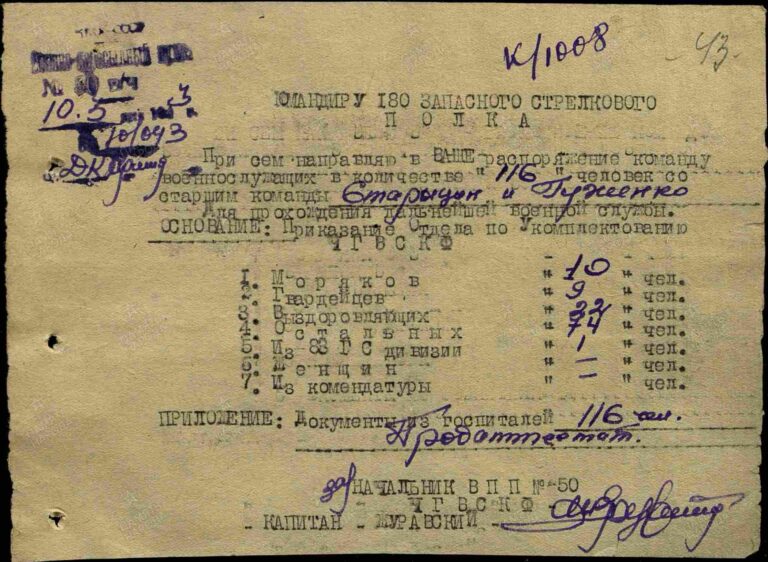 К/1008
43
СССР
№ 50 в/ч
10.5 194 3
10/043
КОМАНДИРУ 180 ЗАПАСНОГО СТРЕЛКОВОГО
П О Л К А
При сем направляю в ВАШЕ распоряжение команду
военнослужащих в количестве " 116 " человек со
старшим команды Старыцин и Гуженко
Для прохождения дальнейшей военной службы.
ОСНОВАНИЕ: Приказание Отдела по Укомплектованию
ЧГВСКФ
1. М о р я к о в " 10 " чел.
2. Гвардейцев " 9 " чел.
3. Выздоровляющих " 22 " чел.
4. О с т а л ь н ы х " 74 " чел.
5. Из 83 ГС дивизии " 1 " чел.
6. Женщин " — " чел.
7. Из комендатуры " — " чел.
ПРИЛОЖЕНИЕ: Документы из госпиталей 116 чел.
Продаттестат.
зам НАЧАЛЬНИК В П П №-50
Ч Г В С К Ф
- КАПИТАН - ЖУРАВСКИЙ -